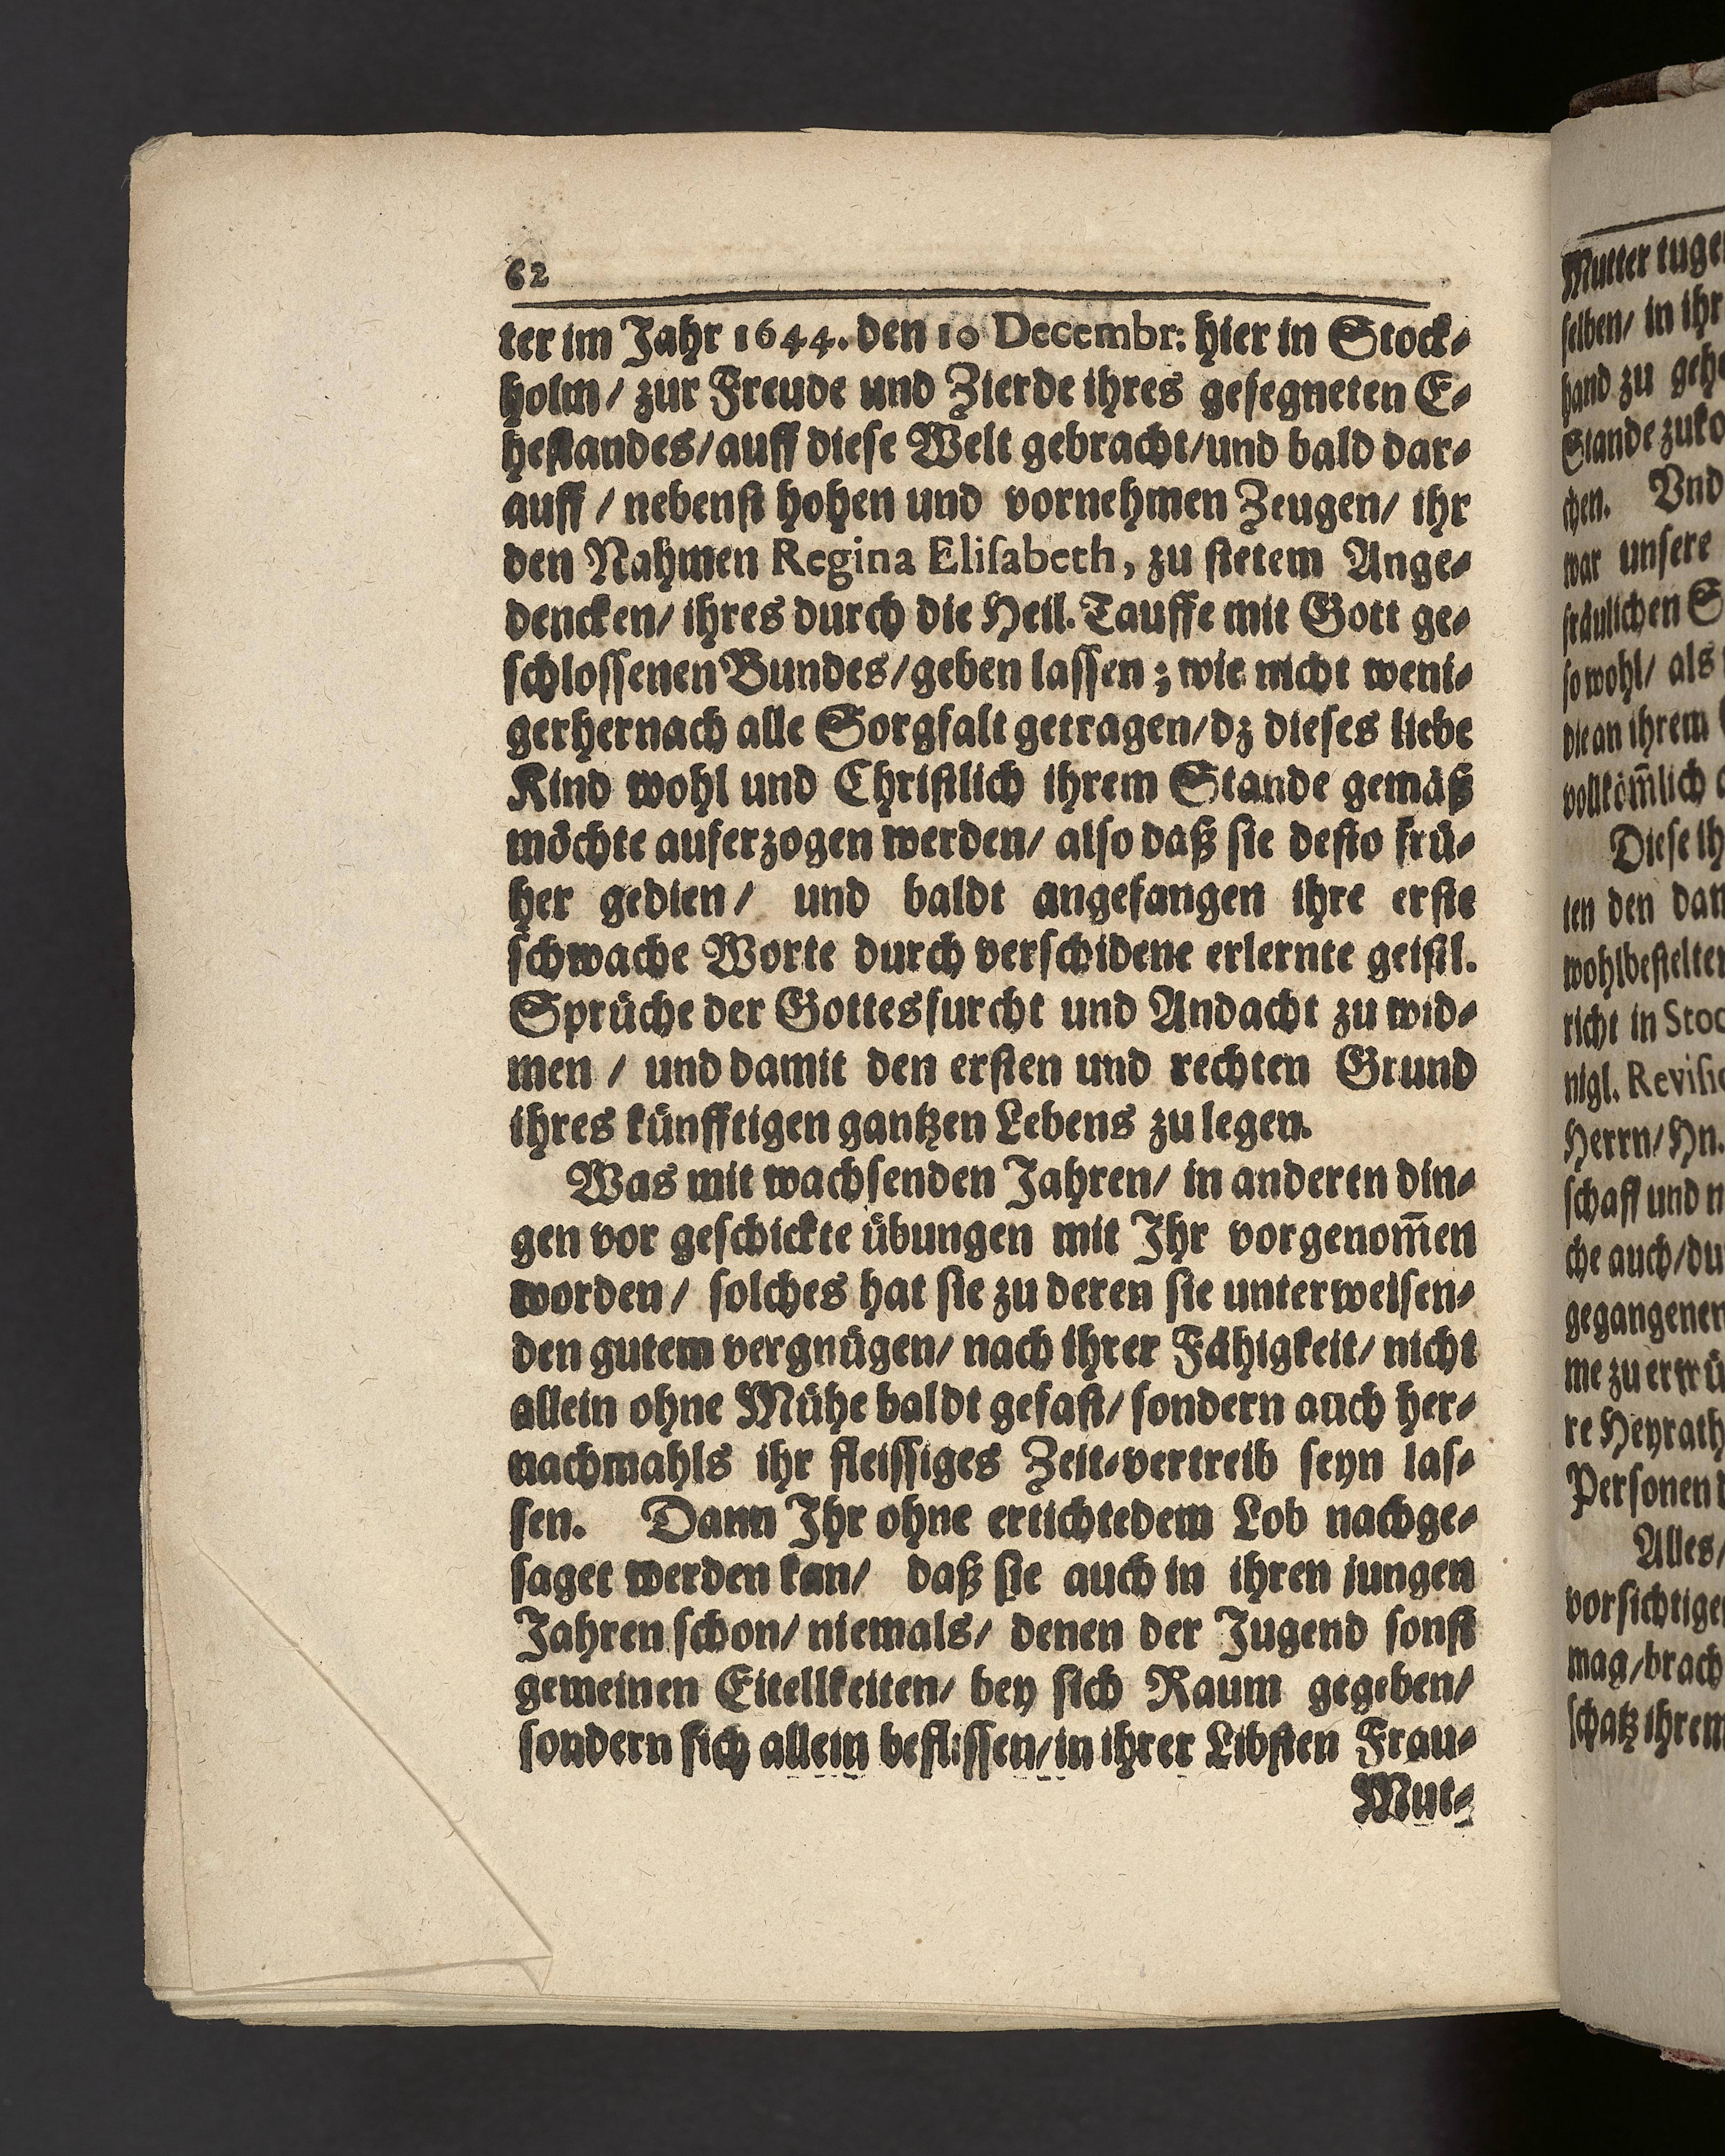 62
ter im Jahr 1644. den 10 Decembr: hier in Stock-
holm / zur Freude und Zierde ihres gesegneten E-
hestandes/ auff diese Welt gebracht/ und bald dar-
auff / nebenst hohen und vornehmen Zeugen/ ihr
den Nahmen Regina Elisabeth, zu stetem Ange-
dencken/ ihres durch die Heil. Tauffe mit Gott ge-
schlossenen Bundes/ geben lassen; wie nicht weni-
ger hernach alle Sorgfalt getragen/ dz dieses liebe
Kind wohl und Christlich ihrem Stande gemäß
möchte auferzogen werden/ also daß sie desto frü-
her gedien/ und baldt angefangen ihre erste
schwache Worte durch verschidene erlernte geistl.
Sprüche der Gottesfurcht und Andacht zu wid-
men / und damit den ersten und rechten Grund
ihres künfftigen gantzen Lebens zu legen.
Was mit wachsenden Jahren/ in anderen din-
gen vor geschickte übungen mit Ihr vorgenom̄en
worden/ solches hat sie zu deren sie unterweisen-
den gutem vergnügen/ nach ihrer Fähigkeit/ nicht
allein ohne Mühe baldt gefast/ sondern auch her-
nachmahls ihr fleissiges Zeit-vertreib seyn las-
sen. Dann Ihr ohne ertichtedem Lob nachge-
saget werden kan/ daß sie auch in ihren jungen
Jahren schon/ niemals/ denen der Jugend sonst
gemeinen Eitellkeiten/ bey sich Raum gegeben/
sondern sich allein beflissen/ in ihrer Libsten Frau-
Mut-
Mutter
selben/ in ihr
hand zu
Stande
chen. Vnd
war unsere
fräulichen
so wohl/ als
die an ihrem
vollköm̄lich
Diese
ten den
wohlbestelter
richt in
nigl.
Herrn/ Hn.
schafft und
che auch/
gegangenen
me zu
re Heyrath
Personen
Alles/
vorsichtige
mag/
schatz ihrem